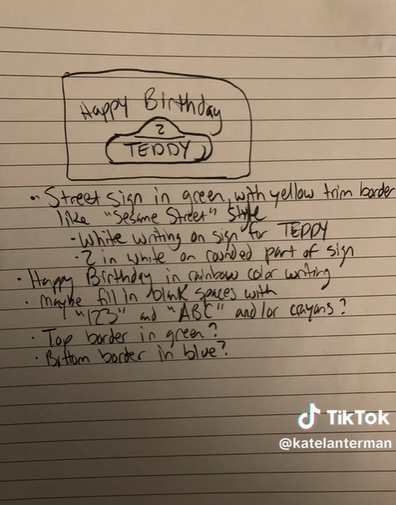 Happy Birthday
2
TEDDY
·· Street sign in green, with yellow trim border
like "Sesame Street" style
· White writing on sign for TEDDY
· 2 in white on rounded part of sign
· Happy Birthday in rainbow color writing
· Maybe fill in blank spaces with
"123" and "ABC" and/or crayons?
· Top border in green?
· Bottom border in blue?
TikTok
@katelanterman